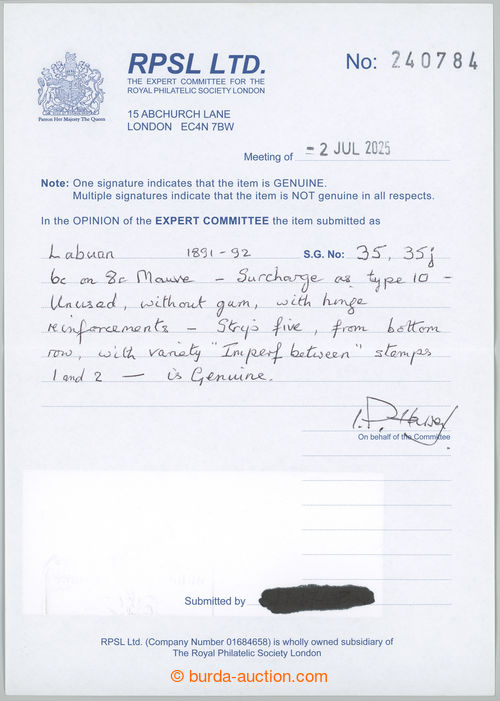 RPSL LTD.
THE EXPERT COMMITTEE FOR THE
ROYAL PHILATELIC SOCIETY LONDON
No: 240784
Patron Her Majesty The Queen
15 ABCHURCH LANE
LONDON EC4N 7BW
Meeting of -2 JUL 2025
Note: One signature indicates that the item is GENUINE.
Multiple signatures indicate that the item is NOT genuine in all respects.
In the OPINION of the EXPERT COMMITTEE the item submitted as
Labuan 1891-92 S.G. No: 35, 35j
6c on 8c Mauve – Surcharge as type 10 –
Unused, without gum, with hinge
reinforcements – Strip five, from bottom
row, with variety "Imperf between" stamps
1 and 2 — is Genuine.
On behalf of the Committee
Submitted by
RPSL Ltd. (Company Number 01684658) is wholly owned subsidiary of
The Royal Philatelic Society London
© burda-auction.com